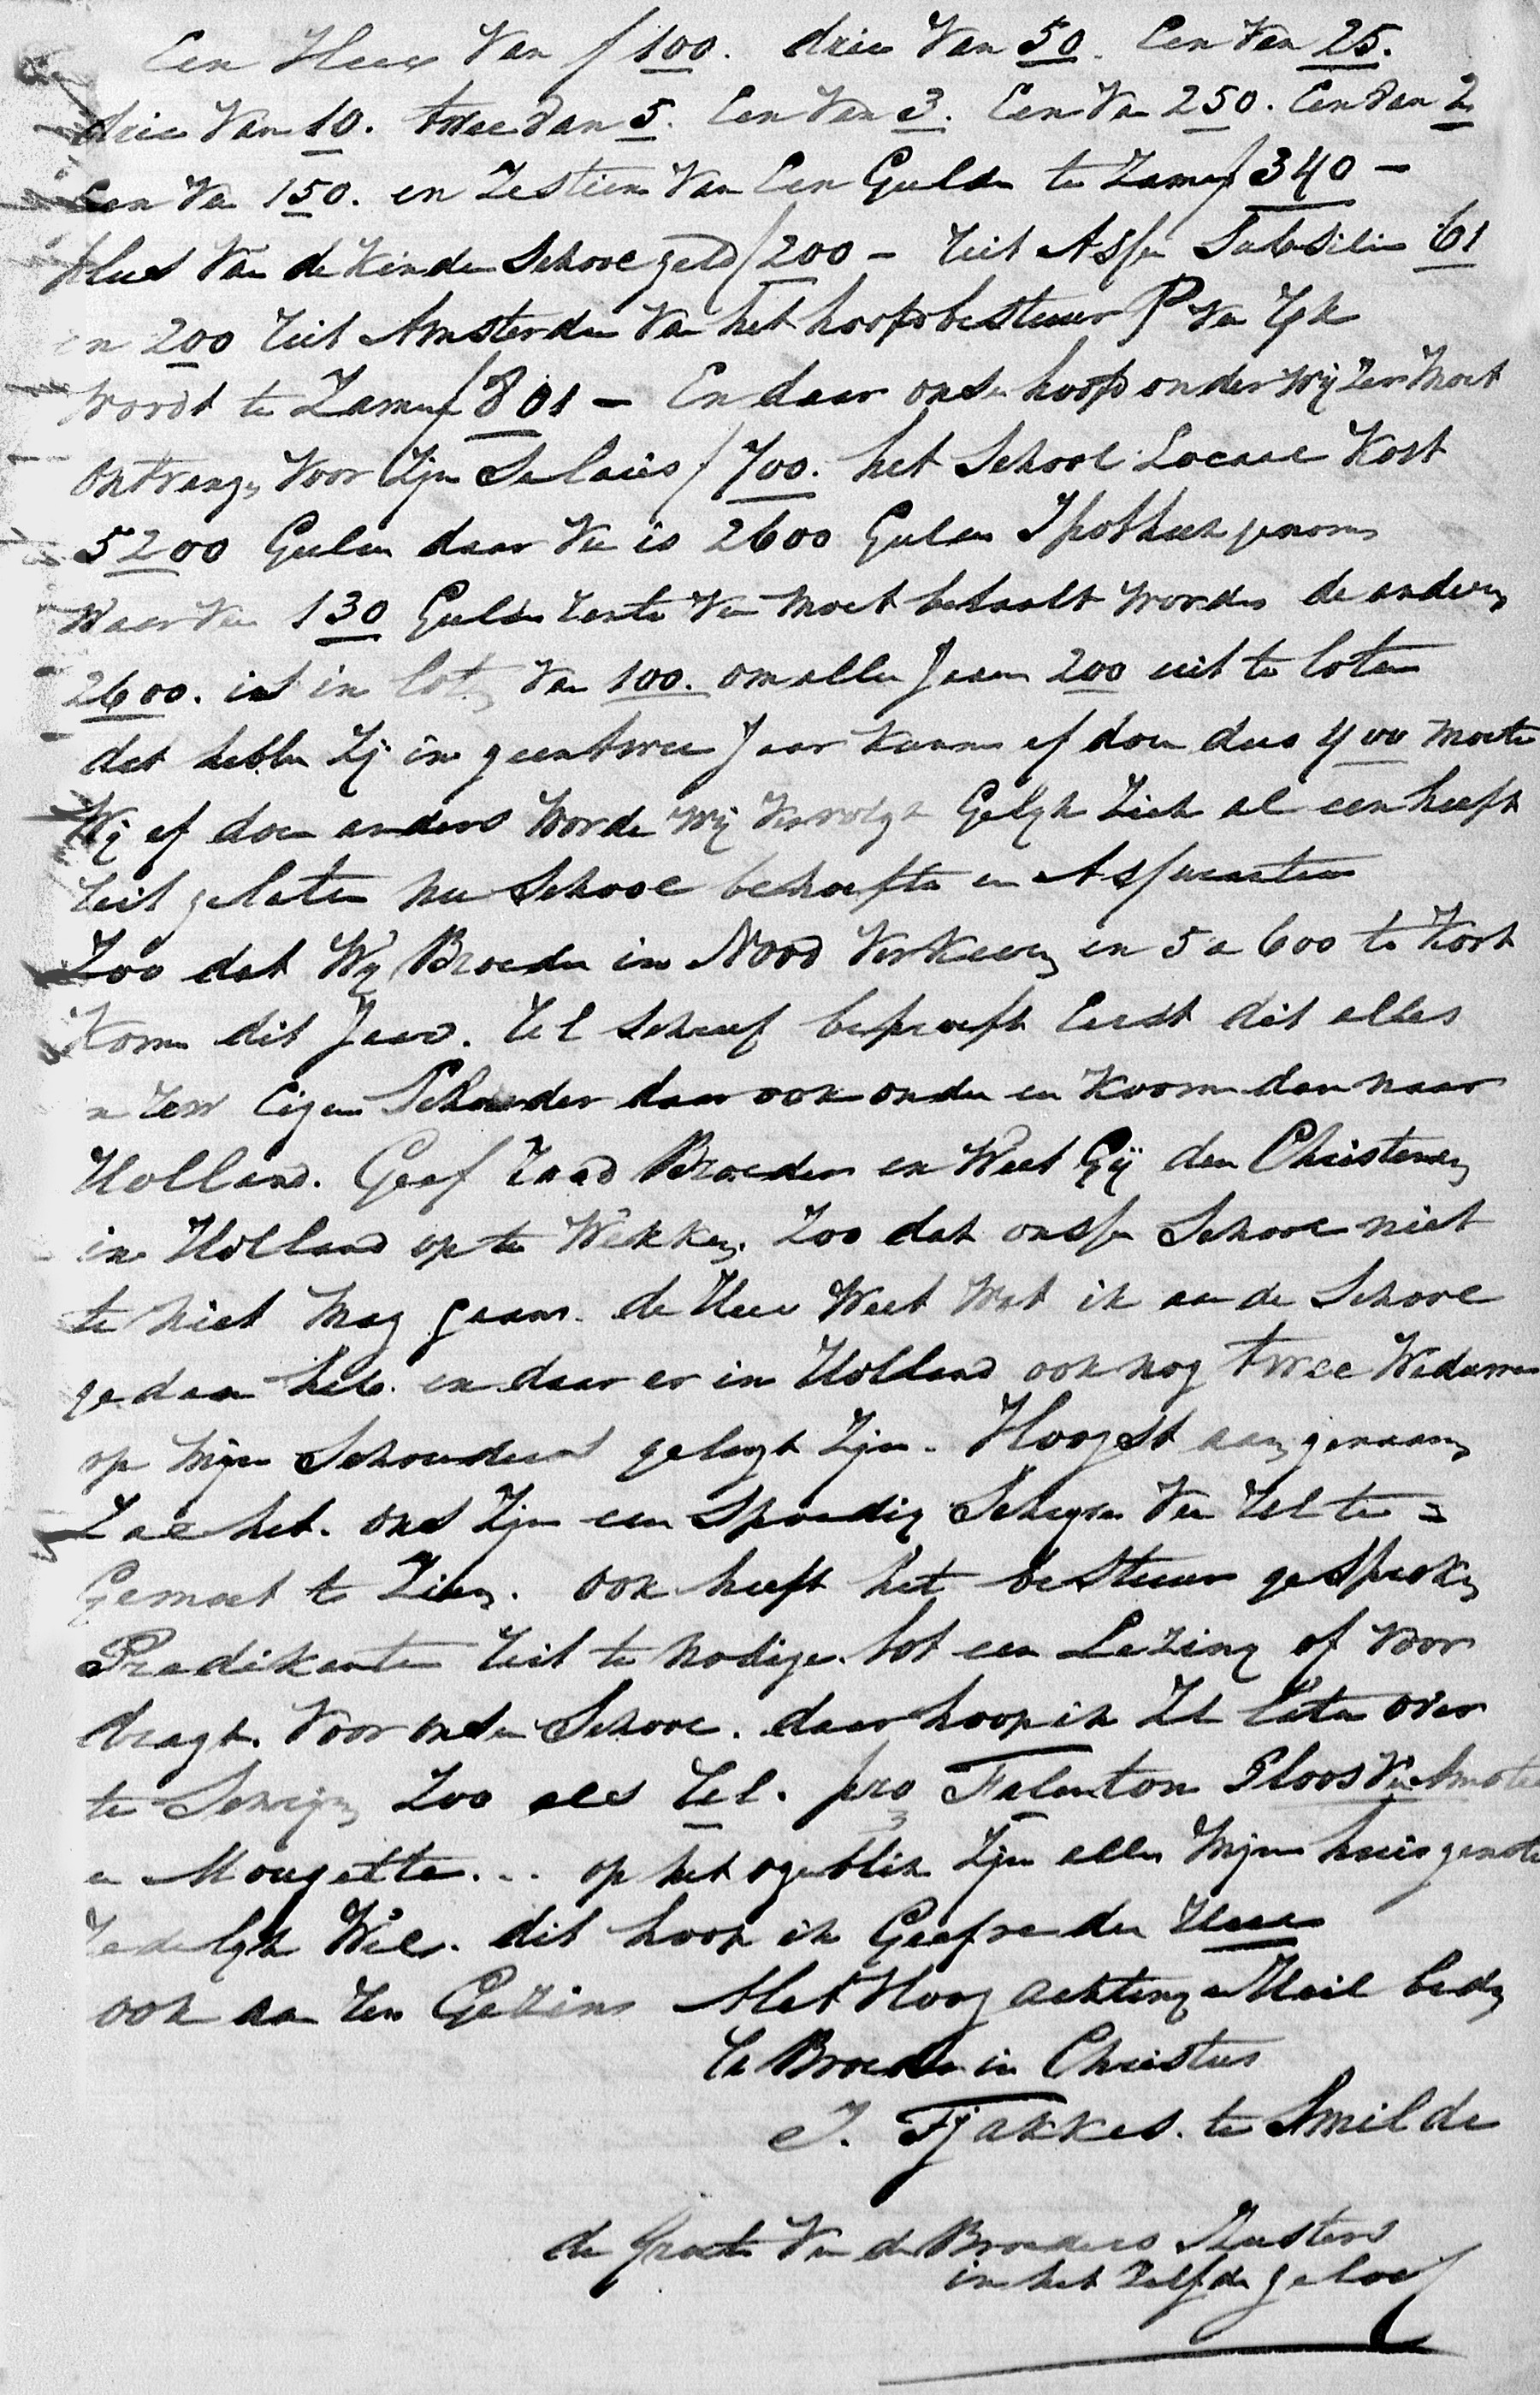 Een Heer Van f 100. drie Van 50. Een Van 25.
drie Van 10. twee Van 5. Een Van 3. Een Van 250. Een Van 2
Een Van 150. en Zestien Van Een Gulden te Zamen f 340 -
plus Van de Kinder Schoolgeld f 200 - Uit Assen Subsidie 61
en 200 Uit Amsterdam Van het hoofdbestuur P Van Eyk
Wordt te Zamen f 801 - En daar onse hoofdonderwijzer Moet
Ontvangen Voor Zijn Salaris f 700. het School Locaal Kost
5200 Gulden daar Van is 2600 Gulden Ipotheek genomen
Waar Van 130 Gulden rente Van Moet betaalt Worden de anderen
2600. is in loten Van 100. om alle Jaaren 200 uit te loten
dat hebben Zij in geen twee Jaar Kunnen af doen dus 400 Moeten
Wij af doen anders Worde Wij Vervolgt Gelijk Zich al een heeft
Uit gelaten nu School behoeften en Assurantie
Zoo dat Wij Broeder in Nood Verkeeren en 5 a 600 te Kort
Komen dit Jaar. Uel Schreef beproeft Eerst dit alles
en Uw Eigen Schouder daar ook onder en Koom dan naar
Holland. Geef raad Broeder en Weet Gij den Christenen
in Holland op te Wekken. Zoo dat onsse School niet
te niet Mag gaan. de Heer Weet Wat ik aan de School
gedaan heb. en daar er in Holland ook nog twee Weduwen
op Mijn Schouders gelegt Zijn. Hoogst aangenaam
Zal het ons Zijn een Spoedig Schrijven Van Uel te =
Gemoet te Zien. ook heeft het bestuur gesproken
Predikanten Uit te Nodigen tot een Lezing of Voor
dragt. Voor onse School. daar hoop ik Uel laten over
te Schrijven Zoo als Uel. pro Talenton Ploos Van Amstel
en Mougette... op het ogenblik Zijn allen Mijn huisgenoten
redelijk Wel. dit hoop ik Geefve den Heer
ook aan Uw Gezin Met Hoog achting en Heil bede
Ue Broeder in Christus
J. Tjakkes. te Smilde
de groete Van de Broeders Zusters
in het Zelfde geloof